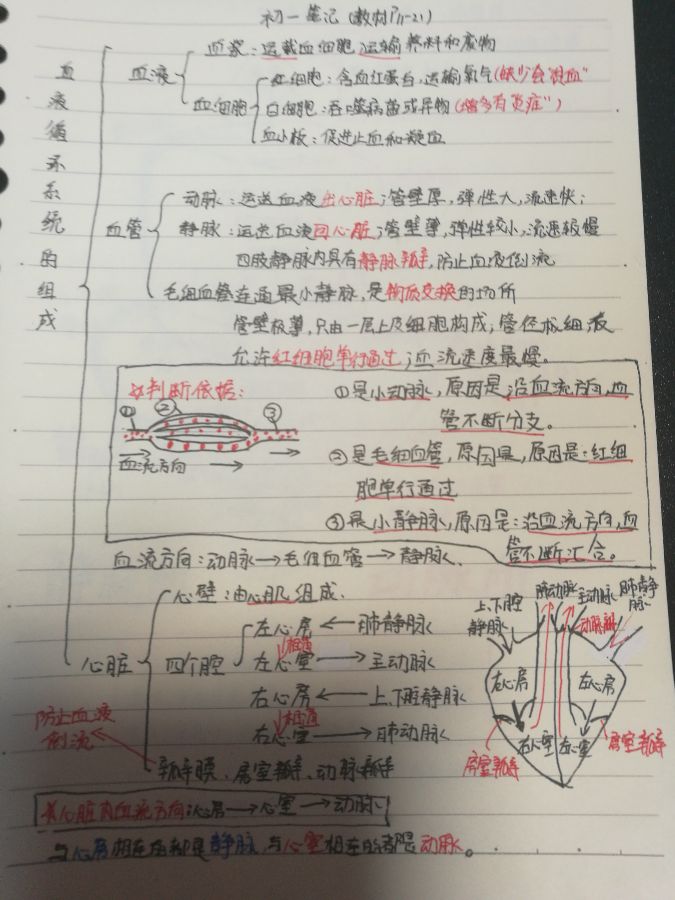 初一笔记(教材P11-21)
血液循环系统的组成
血液
血浆：运载血细胞 运输养料和废物
血细胞
红细胞：含血红蛋白，运输氧气(缺少会"贫血"
白细胞：吞噬病菌或异物("增多有炎症")
血小板：促进止血和凝血
血管
动脉：运送血液出心脏；管壁厚，弹性大，流速快；
静脉：运送血液回心脏；管壁薄，弹性较小，流速较慢
四肢静脉内具有静脉瓣，防止血液倒流
毛细血管连通最小静脉，是物质交换的场所
管壁极薄，只由一层上皮细胞构成；管径极细
允许红细胞单行通过；血流速度最慢。
☆判断依据：
① ② ③
血流方向
①是小动脉，原因是沿血流方向，血
管不断分支。
②是毛细血管，原因是，原因是：红细
胞单行通过
③是小静脉，原因是：沿血流方向，血
管不断汇合。
血流方向：动脉→毛细血管→静脉.
心脏
心壁：由心肌组成.
四个腔
左心房←肺静脉
相通
左心室→主动脉
右心房←上、下腔静脉
相通
右心室→肺动脉
瓣膜、房室瓣、动脉瓣
防止血液
倒流
上、下腔
静脉
肺动脉
主动脉
肺静
脉
动脉瓣
右心房
左心房
右心室
左心室
房室瓣
房室瓣
☆心脏内血流方向：心房→心室→动脉
与心房相连的都是静脉，与心室相连的都是动脉。